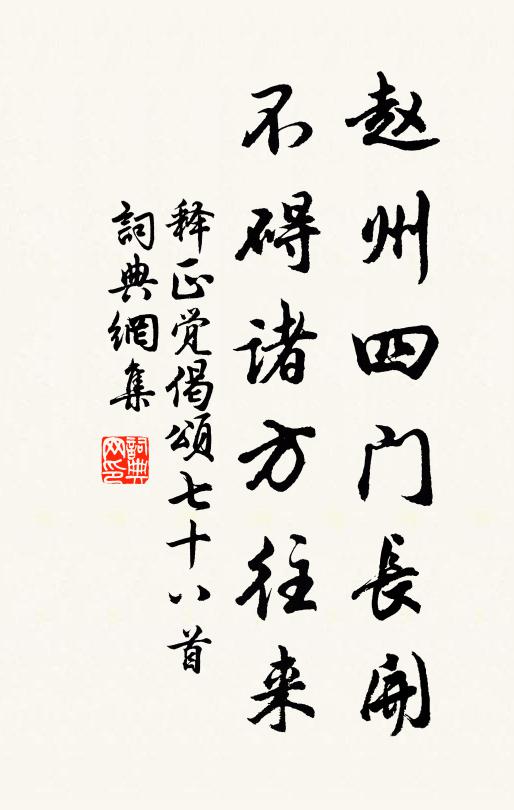 赵州四门长開
不碍诸方往来
释正覚偈頌七十八首
詞典網集
詞典网印